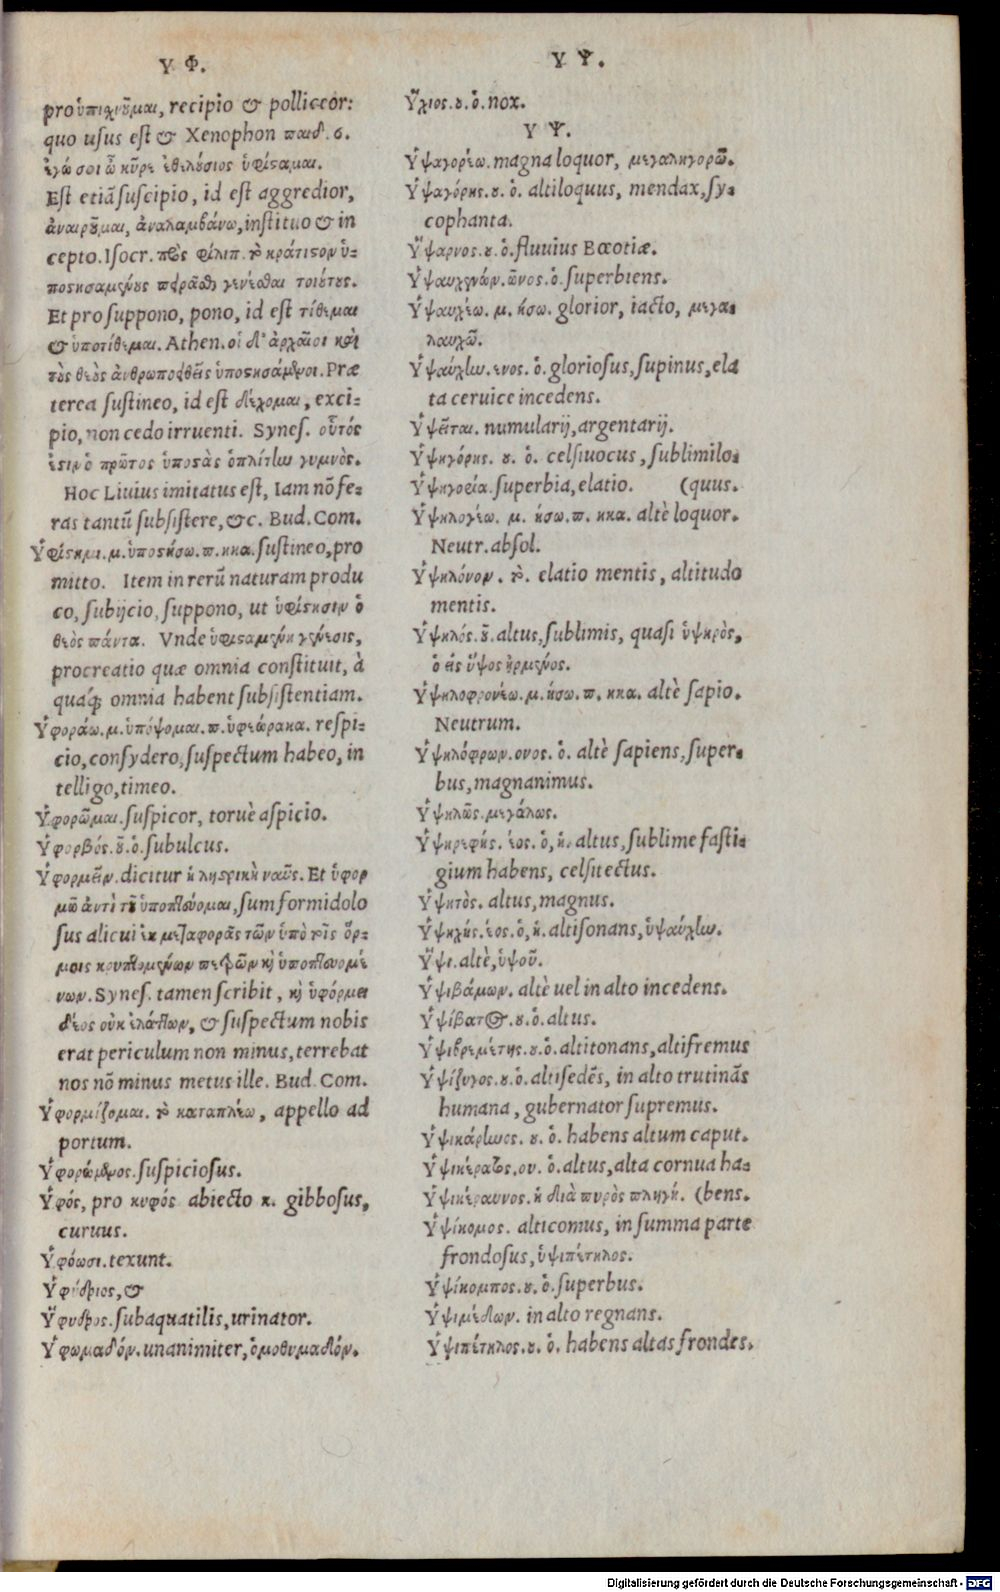 Υ Φ.
pro ὑπιχνοῦμαι, recipio & polliceor:
quo usus est & Xenophon παιδ. ϛ.
ἐγώ σοι ὦ κῦρε ἐθελούσιος ὑφίσαμαι.
Est etiã suscipio, id est aggredior,
ἀναιροῦμαι, ἀναλαμβάνω, instituo & in
cepto. Isocr. πρὸς φίλιπ. τὸ κράτιστον ὑ-
ποστησαμένους πειρᾶσθαι γενέσθαι τοιούτους.
Et pro suppono, pono, id est τίθεμαι
& ὑποτίθεμαι. Athen. οἱ δ' ἀρχαῖοι καὶ
τοὺς θεοὺς ἀνθρωποειδεῖς ὑποστησάμενοι. Præ
terea sustineo, id est δέχομαι, exci-
pio, non cedo irruenti. Synes. οὗτός
ἐστιν ὁ πρῶτος ὑποστὰς ὁπλίτην γυμνὸς.
Hoc Liuius imitatus est, Iam nõ fe-
ras tantũ subsistere, &c. Bud. Com.
Ὑφίστημι. μ. ὑποστήσω. π. κκα. sustineo, pro
mitto. Item in rerũ naturam produ
co, subijcio, suppono, ut ὑφίστησιν ὁ
θεὸς πάντα. Vnde ὑφισταμένη γένεσις,
procreatio quæ omnia constituit, à
quaq́; omnia habent subsistentiam.
Ὑφοράω. μ. ὑπόψομαι. π. ὑφεώρακα. respi-
cio, consydero, suspectum habeo, in
telligo, timeo.
Ὑφορῶμαι. suspicor, toruè aspicio.
Ὑφορβός. οῦ. ὁ. subulcus.
Ὑφορμεῖν. dicitur ἡ λῃστρικὴ ναῦς. Et ὑφορ
μῶ ἀντὶ τοῦ ὑποπτεύομαι, sum formidolo
sus alicui ἐκ μεταφορᾶς τῶν ὑπὸ τοῖς ὅρ-
μοις κρυπτομένων πειρατῶν καὶ ὑποπτευομέ
νων. Synes. tamen scribit, καὶ ὑφόρμει
δέος οὐκ ἔλαττον, & suspectum nobis
erat periculum non minus, terrebat
nos nõ minus metus ille. Bud. Com.
Ὑφορμίζομαι. τὸ καταπλέω, appello ad
portum.
Ὑφορώμενος. suspiciosus.
Ὑφός, pro κυφός abiecto κ. gibbosus,
curuus.
Ὑφόωσι. texunt.
Ὑφύδριος, &
Ὕφυδρος. subaquatilis, urinator.
Ὑφωμαδόν. unanimiter, ὁμοθυμαδόν.
Υ Ψ.
Ὕχιος. ου. ὁ. nox.
Υ Ψ.
Ὑψαγορέω. magna loquor, μεγαληγορῶ.
Ὑψαγόρης. ου. ὁ. altiloquus, mendax, sy-
cophanta.
Ὕψαρνος. ου. ὁ. fluuius Bœotiæ.
Ὑψαυχενῶν. ῶνος. ὁ. superbiens.
Ὑψαυχέω. μ. ήσω. glorior, iacto, μεγα-
λαυχῶ.
Ὑψαύχην. ενος. ὁ. gloriosus, supinus, ela
ta ceruice incedens.
Ὑψεῖται. numularij, argentarij.
Ὑψηγόρης. ου. ὁ. celsiuocus, sublimilo-
Ὑψηγορία. superbia, elatio. (quus.
Ὑψηλογέω. μ. ήσω. π. κκα. altè loquor.
Neutr. absol.
Ὑψηλόνον. τὸ. elatio mentis, altitudo
mentis.
Ὑψηλός. οῦ. altus, sublimis, quasi ὑψηρὸς,
ὁ εἰς ὕψος ἠρμένος.
Ὑψηλοφρονέω. μ. ήσω. π. κκα. altè sapio.
Neutrum.
Ὑψηλόφρων. ονος. ὁ. altè sapiens, super-
bus, magnanimus.
Ὑψηλῶς. μεγάλως.
Ὑψηρεφής. έος. ὁ, ἡ. altus, sublime fasti-
gium habens, celsitectus.
Ὑψητὸς. altus, magnus.
Ὑψηχής. έος. ὁ, ἡ. altisonans, ὑψαύχην.
Ὕψι. altè, ὑψοῦ.
Ὑψιβάμων. altè uel in alto incedens.
Ὑψίβατος. ου. ὁ. altus.
Ὑψιβρεμέτης. ου. ὁ. altitonans, altifremus
Ὑψίζυγος. ου. ὁ. altisedẽs, in alto trutinãs
humana, gubernator supremus.
Ὑψικάρηνος. ου. ὁ. habens altum caput.
Ὑψικέρατος, ου. ὁ. altus, alta cornua ha-
Ὑψικέραυνος. ἡ διὰ πυρὸς πληγή. (bens.
Ὑψίκομος. alticomus, in summa parte
frondosus, ὑψιπέτηλος.
Ὑψίκομπος. ου. ὁ. superbus.
Ὑψιμέδων. in alto regnans.
Ὑψιπέτηλος. ου. ὁ. habens altas frondes.
Digitalisierung gefördert durch die Deutsche Forschungsgemeinschaft - DFG